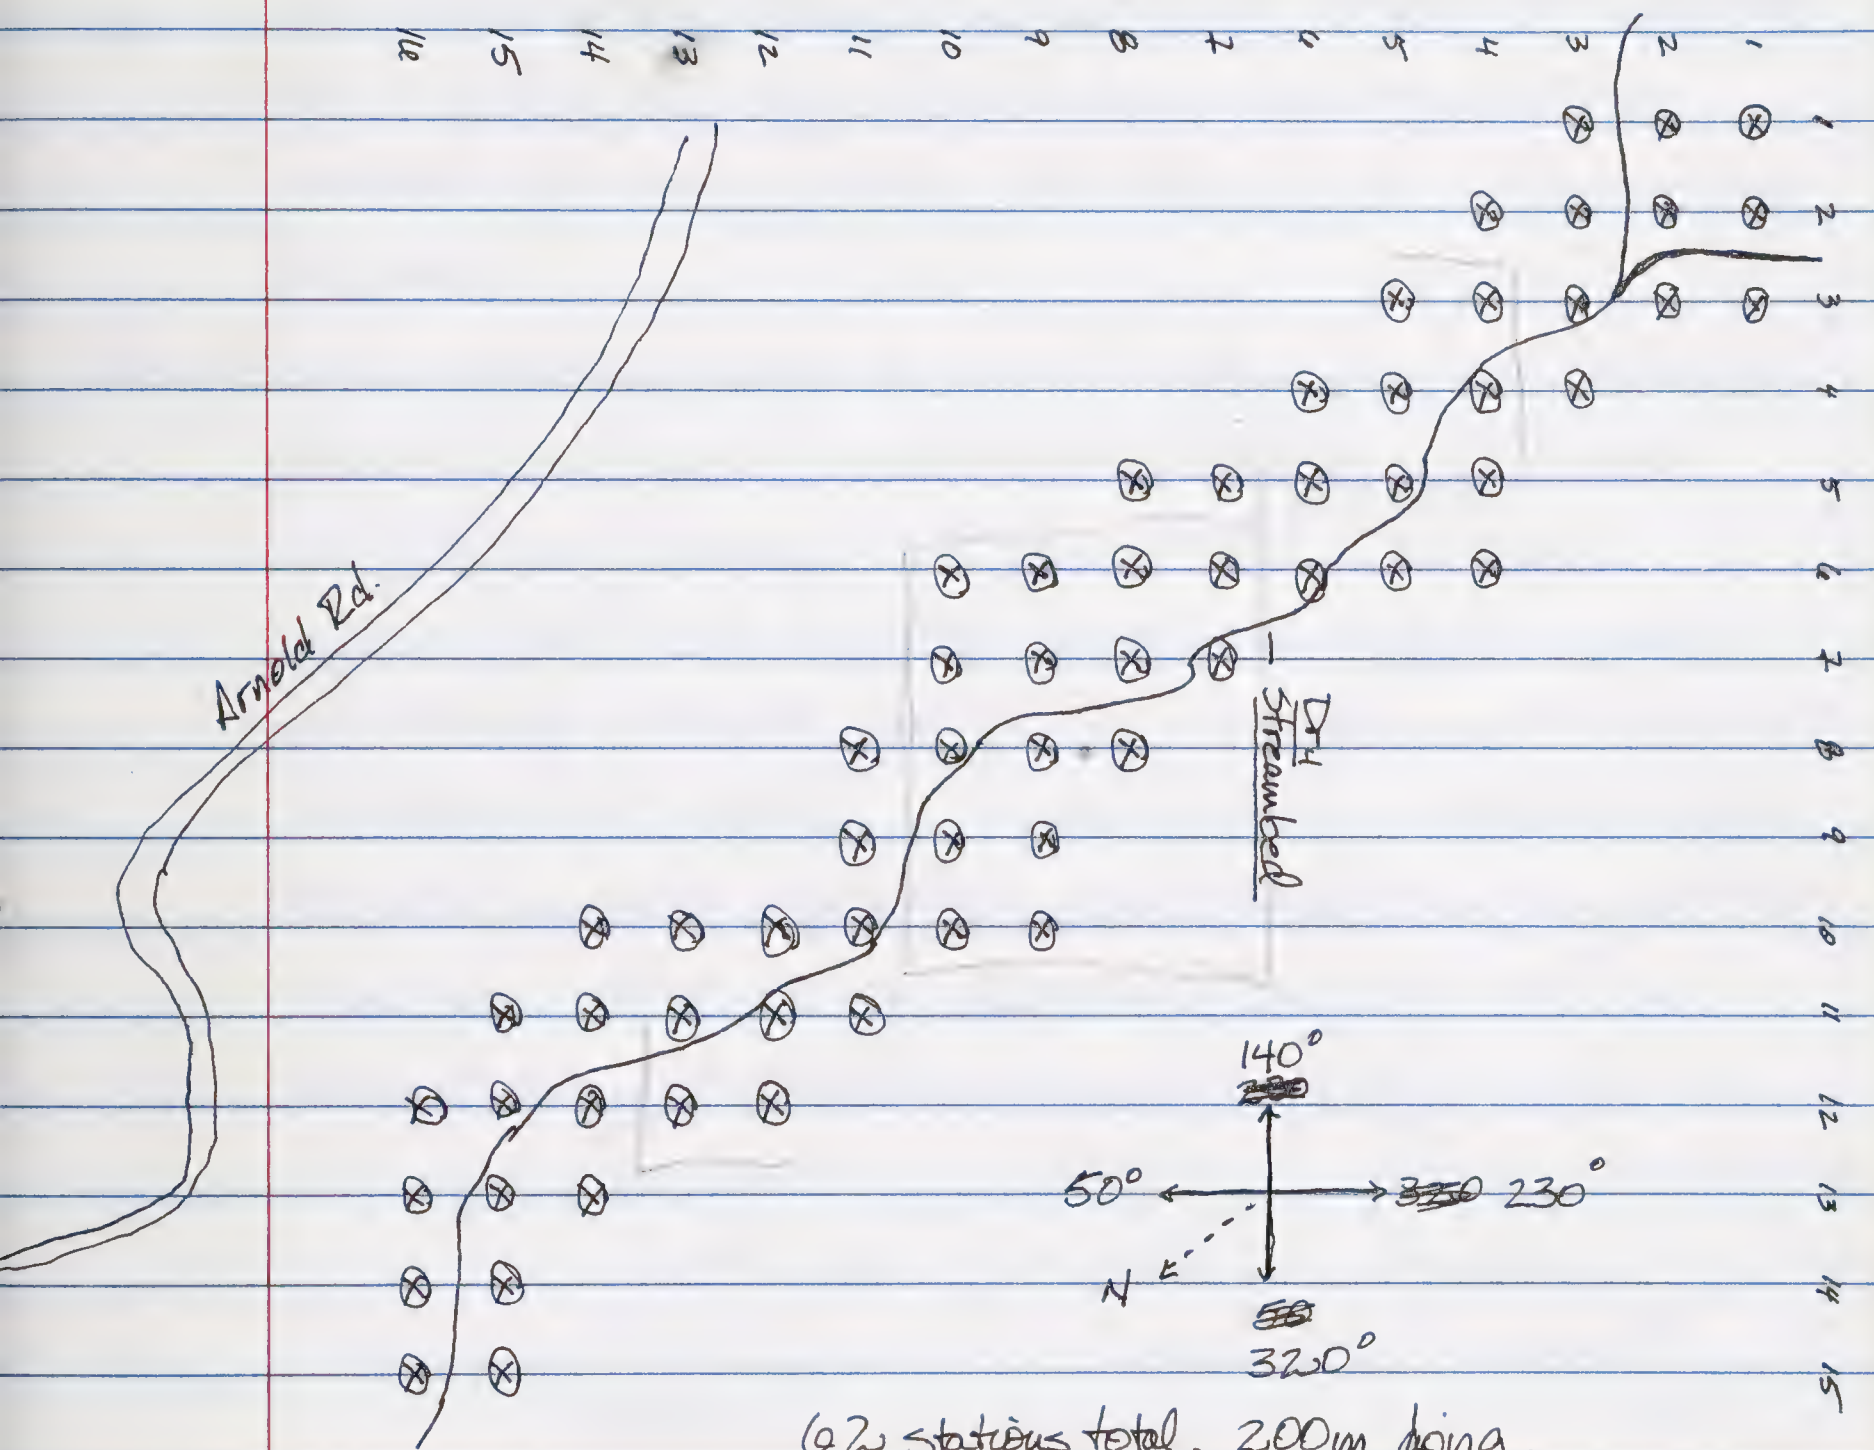 16 15 14 13 12 11 10 9 8 7 6 5 4 3 2 1
1
2
3
4
5
6
7
8
9
10
11
12
13
14
15
Arnold Rd.
Dry
Streambed
140°
50°
230°
N
320°
62 stations total. 200m